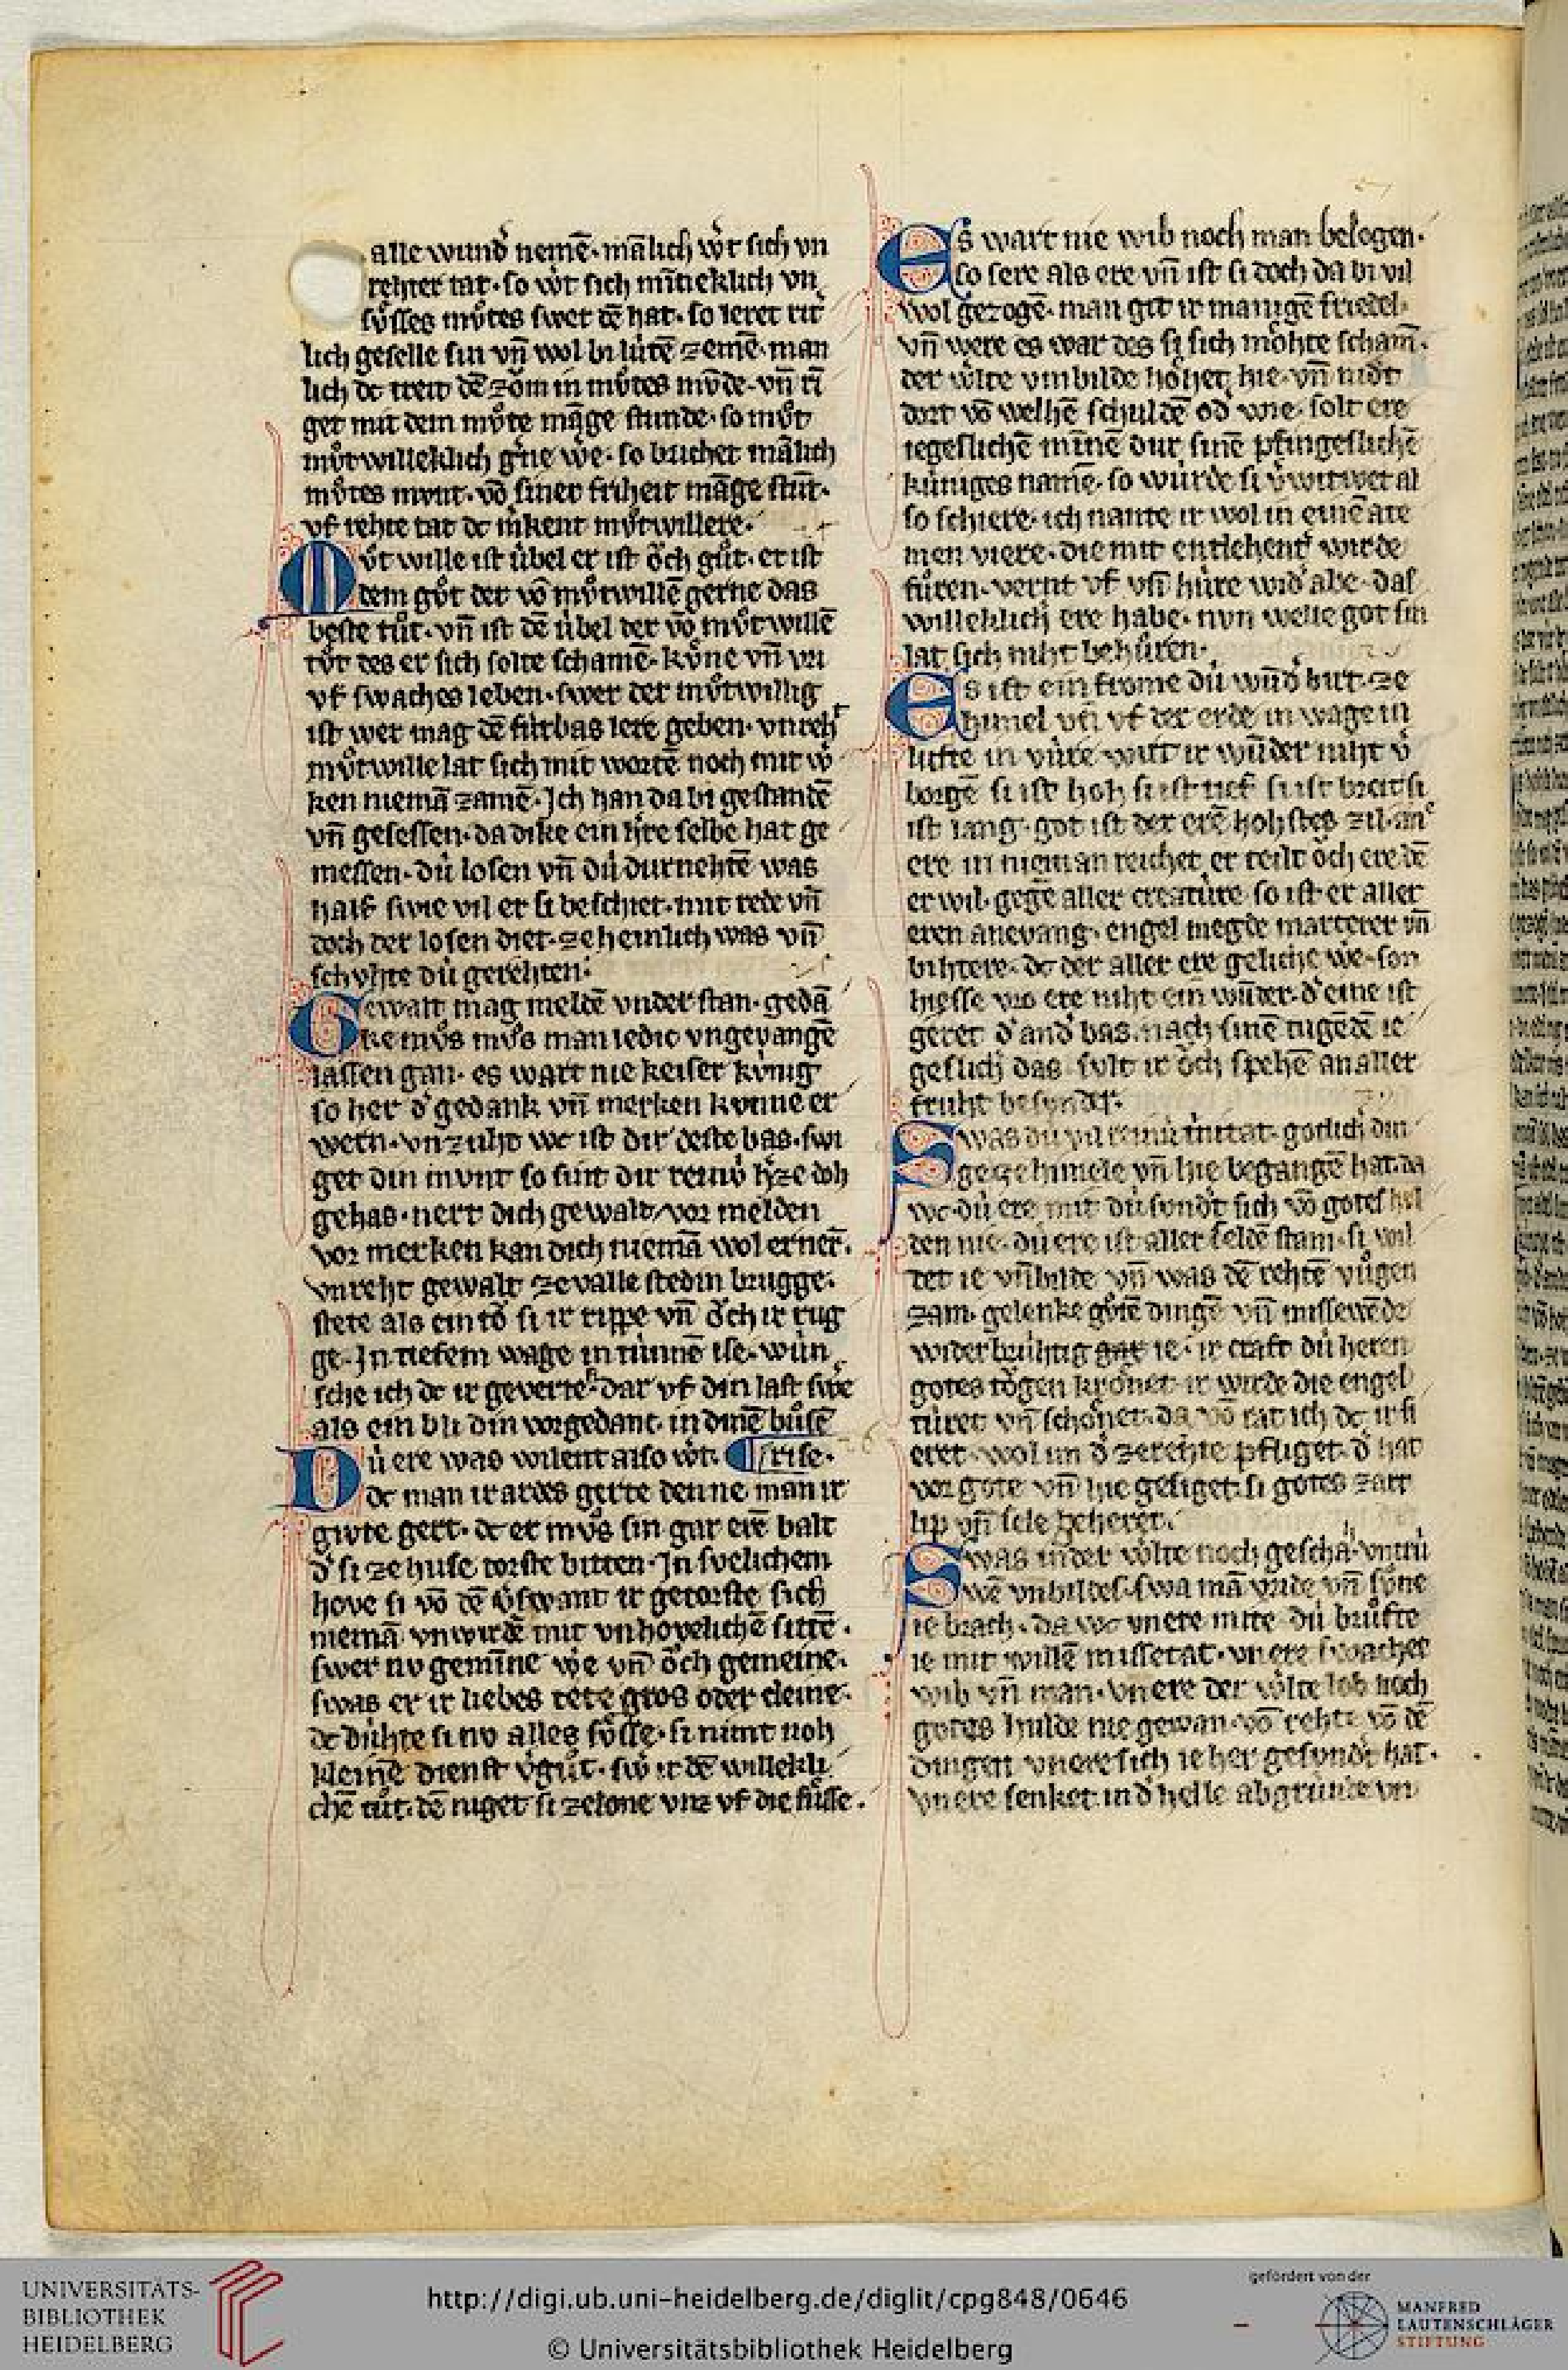 alle wund͛ nemē· mālich w͛t sich vn
rehter tat· so w͛t sich mīneklich vn
sv̊sses mv̊tes swet dē hat· so leret rit͛
lich geselle sin vn̄ wol bi lúten zemē· man
lich dc treit dē zom in mv̊tes mvnde· vn̄ rī
get mit dem mv̊te māge stunde· so mv̊t
mv̊twilleklich g͛ne we· so bruchet mālich
mv̊tes mvnt· vō siner friheit māge stūt·
vf rehte tat dc
Mv̊t wille ist úbel er ist o̊ch gůt· er ist
dem gůt der vō mv̊twillē gerne das
beste tůt· vn̄ ist dē úbel der vō mv̊twillē
tůt des er sich solte schamē· kv̊ne vn̄
vf swaches leben· swer der mv̊twillig
ist wer mag dē fúrbas lere geben· vnreh
mv̊twille lat sich mit wortē noch mit w͛
ken niemā zamē· Ich han da bi gestandē
vn̄ gesessen· da dike ein h͛re selbe hat ge
messen· dú losen vn̄ dú durnehtē was
half swie vil er si beschiet· mit rede vn̄
doch der losen diet· ze heinlich was vn̄
schvhte dú gerehten·
Gewalt mag meldē vnder stan· gedā
ke mv̊s mv̊s man ledic vngevangē
lassen gan· es wart nie keiser kv́nig
so her d͛ gedank vn̄ merken kvnne er
wern· vnzuht wc ist dir deste bas· swi
get din mvnt so sint dir h͛ze doh
gehas· nert dich gewalt vor melden
vor merken kan dich niemā wol erner̄·
vnreht gewalt ze valle stedin brugge·
stete als ein to si ir rippe vn̄ o̊ch ir rug
ge· In tiefem wage in tūnnē ise· wún
sche ich dc ir geverte· dar vf din last sw͛e
als ein bli din vorgedanc· in dinē bůsē
Dú ere was wilent also w͛t· rise·
dc man ir alwes gerte denne man ir
gvte gert· dc er mv̊s sin gar erē balt
d͛ si ze huse torste bitten· In svelichem
hove si vō dē getorste sich
niemā vnwirdē mit vnhovelichē sittē·
swer nv gemīne we vn̄ o̊ch gemeine·
swas er ir liebes tete gros oder cleine·
dc dúhte si nv alles sv̊sse· si nimt noh
kleinē dienst v͛gůt· sw͛ ir dē willekli
chē tůt· dē niget si zelone vnz vf die fússe·
Es wart nie wib noch man belogen·
so sere als ere vn̄ ist si doch da bi vil
wol gezogē· man git ir manigē friedel
vn̄ were es war des si sich möhte scham̄·
der w͛lte vmbilde höhet hie· vn̄ nid͛t
dort vō welhē schuldē od͛ wie· solt ere
iegeslichē mīnē dur sinē pfingeslichē
kúniges namē· so wúrde si v͛witwet al
so schiere· ich nante ir wol in einē ate
men viere· die mit entlehent͛ wirde
fůren· vernt vf vn̄ húre wid͛ abe· das
willeklich ere habe· nvn welle got sin
lat sich niht behúren·
Es ist ein frome dú wūd͛ birt· ze
himel vn̄ vf der erde in wage in
lufte in vúre· wirt ir wūder niht v͛
borgē si ist hoh si ist tief si ist breit si
ist lang· got ist der erē hohstes zil· an
ere in nieman reichet er teilt o̊ch ere dē
er wil· gegē aller creatúre· so ist er aller
eren anevang· engel megde marterer vn̄
bihtere· dc der aller ere geliche we· son
hiesse vro ere niht ein wūder· d͛ eine ist
geret d͛ and͛ bas· nach sinē tugēdē ie
geslich das svlt ir o̊ch spehē an aller
fruht besvnder·
Swas dú vil reinú trinitat· gotlich din
ge ze himele vn̄ hie begangē hat· da
wc dú ere mit dú svnd͛t sich vō gotes hul
den nie· dú ere ist aller selde stam· si wil
tet ie vn̄bilde vn̄ was dē rehtē vůgen
zam· gelenke gůtē dingē vn̄ missewēde
widerbrúhtig gar ie· ir craft dú heren
gotes tögen krönet· ir wirde die engel
túret vn̄ schönet· da vō rat ich dc ir si
eret· wol im d͛ ze rehte pfliget· d͛ hat
vor gote vn̄ hie gesiget· si gotes zart
lip vn̄ sele geheret·
Swas in der w͛lte noch geschā· vntrú
wē vnbildes· swa mā vride vn̄ sv̊ne
ie brach· da wc vnere mitte· dú brufte
ie mit willē missetat· vnere swachet
wib vn̄ man· vnere der w͛lte lob noch
gotes hulde nie gewan· vō rehte vō dē
dingen vnere sich ie her gesvnd͛t hat·
vnere senket in d͛ helle abgrunde vn
UNIVERSITÄTS-
BIBLIOTHEK
HEIDELBERG
http://digi.ub.uni-heidelberg.de/diglit/cpg848/0646
© Universitätsbibliothek Heidelberg
gefördert von der
MANFRED
LAUTENSCHLÄGER
STIFTUNG